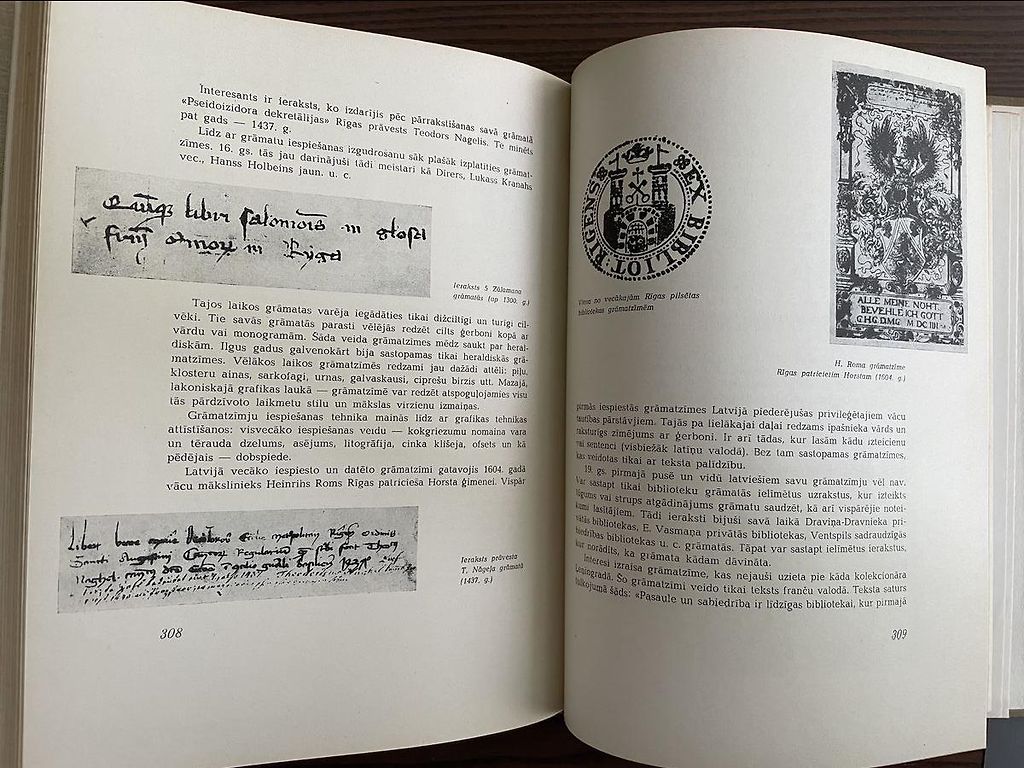 Interesants ir ieraksts, ko izdarījis pēc pārrakstīšanas savā grāmatā
«Pseidoizidora dekretālijas» Rīgas prāvests Teodors Nagelis. Te minēts
pat gads — 1437. g.
Līdz ar grāmatu iespiešanas izgudrošanu sāk plašāk izplatīties grāmat-
zīmes. 16. gs. tās jau darinājuši tādi meistari kā Dīrers, Lukass Kranahs
vec., Hanss Holbeins jaun. u. c.
libri salomois in glosa
in Ryga
Ieraksts 5 Zālamana
grāmatās (ap 1300. g.)
Tajos laikos grāmatas varēja iegādāties tikai dižciltīgi un turīgi cil-
vēki. Tie savās grāmatās parasti vēlējās redzēt cilts ģerboni kopā ar
vārdu vai monogramām. Šāda veida grāmatzīmes mēdz saukt par heral-
diskām. Ilgus gadus galvenokārt bija sastopamas tikai heraldiskās grā-
matzīmes. Vēlākos laikos grāmatzīmēs redzami jau dažādi attēli: piļu,
klosteru ainas, sarkofagi, urnas, galvaskausi, ciprešu birzis utt. Mazajā,
lakoniskajā grafikas laukā — grāmatzīmē var redzēt atspoguļojamies visu
tās pārdzīvoto laikmetu stilu un mākslas virzienu izmaiņas.
Grāmatzīmju iespiešanas tehnika mainās līdz ar grafikas tehnikas
attīstīšanos: visvecāko iespiešanas veidu — kokgriezumu nomaina vara
un tērauda dzelums, asējums, litogrāfija, cinka klišeja, ofsets un kā
pēdējais — dobspiede.
Latvijā vecāko iespiesto un datēto grāmatzīmi gatavojis 1604. gadā
vācu mākslinieks Heinrihs Roms Rīgas patricieša Horsta ģimenei. Vispār
Ieraksts prāvesta
T. Nāgeļa grāmatā
(1437. g.)
308
EX BIBLIOT. RIGENS
Viena no vecākajām Rīgas pilsētas
bibliotekas grāmatzīmēm
ALLE MEINE NOHT
BEVEHLE ICH GOTT
G.H.G.D.M.G. M DC IIII
H. Roma grāmatzīme
Rīgas patricietim Horstam (1604. g.)
pirmās iespiestās grāmatzīmes Latvijā piederējušas privileģētajiem vācu
tautības pārstāvjiem. Tajās pa lielākajai daļai redzams īpašnieka vārds un
raksturīgs zīmējums ar ģerboni. Ir arī tādas, kur lasām kādu izteicienu
vai sentenci (visbiežāk latiņu valodā). Bez tam sastopamas grāmatzīmes,
kas veidotas tikai ar teksta palīdzību.
19. gs. pirmajā pusē un vidū latviešiem savu grāmatzīmju vēl nav.
Var sastapt tikai biblioteku grāmatās ielīmētus uzrakstus, kur izteikts
lūgums vai strups atgādinājums grāmatu saudzēt, kā arī vispārējie notei-
kumi lasītājiem. Tādi ieraksti bijuši savā laikā Draviņa-Dravnieka pri-
vātās bibliotekas, E. Vasmaņa privātās bibliotekas, Ventspils sadraudzīgās
biedrības bibliotekas u. c. grāmatās. Tāpat var sastapt ielīmētus ierakstus,
kur norādīts, ka grāmata kādam dāvināta.
Interesi izraisa grāmatzīme, kas nejauši uzieta pie kāda kolekcionāra
Ļeņingradā. Šo grāmatzīmi veido tikai teksts franču valodā. Teksta saturs
tulkojumā šāds: «Pasaule un sabiedrība ir līdzīgas bibliotekai, kur pirmajā
309